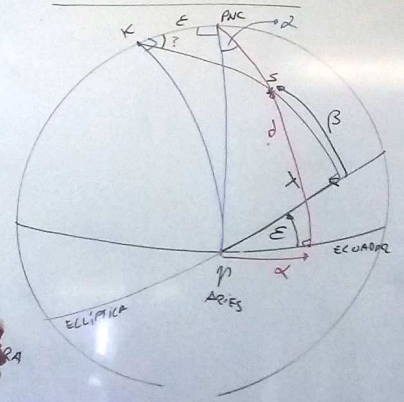 ε PNC α
K ?
S
β
d
λ
ε
ECUADOR
♈ α
ARIES
ECLÍPTICA
RA